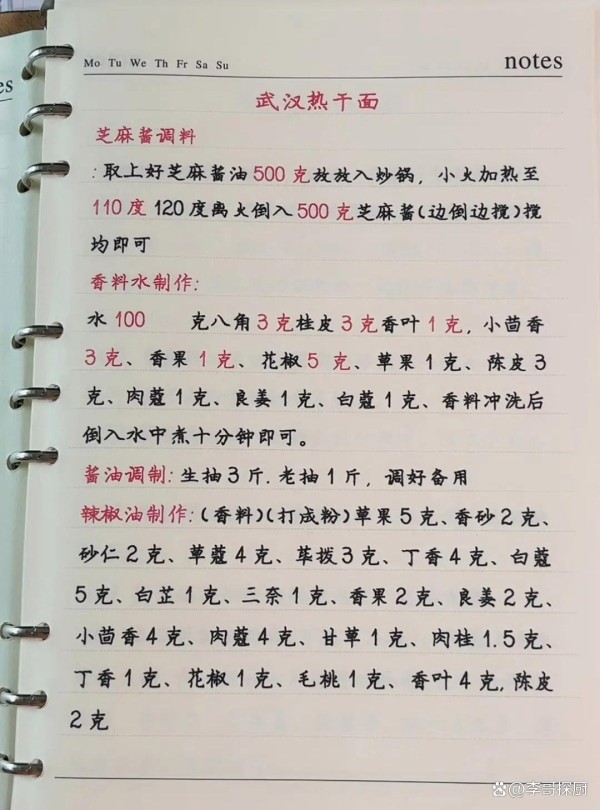 es
Mo Tu We Th Fr Sa Su
notes
武汉热干面
芝麻酱调料
:取上好芝麻酱油500克放放入炒锅,小火加热至
110度120度离火倒入500克芝麻酱(边倒边搅)搅
均即可
香料水制作:
水100 克八角3克桂皮3克香叶1克,小茴香
3克、香果1克、花椒5克、草果1克、陈皮3
克、肉蔻1克、良姜1克、白蔻1克、香料冲洗后
倒入水中煮十分钟即可。
酱油调制:生抽3斤.老抽1斤,调好备用
辣椒油制作:(香料)(打成粉)草果5克、香砂2克、
砂仁2克、草蔻4克、荜拨3克、丁香4克、白蔻
5克、白芷1克、三奈1克、香果2克、良姜2克、
小茴香4克、肉蔻4克、甘草1克、肉桂1.5克、
丁香1克、花椒1克、毛桃1克、香叶4克,陈皮
2克
@李哥探厨